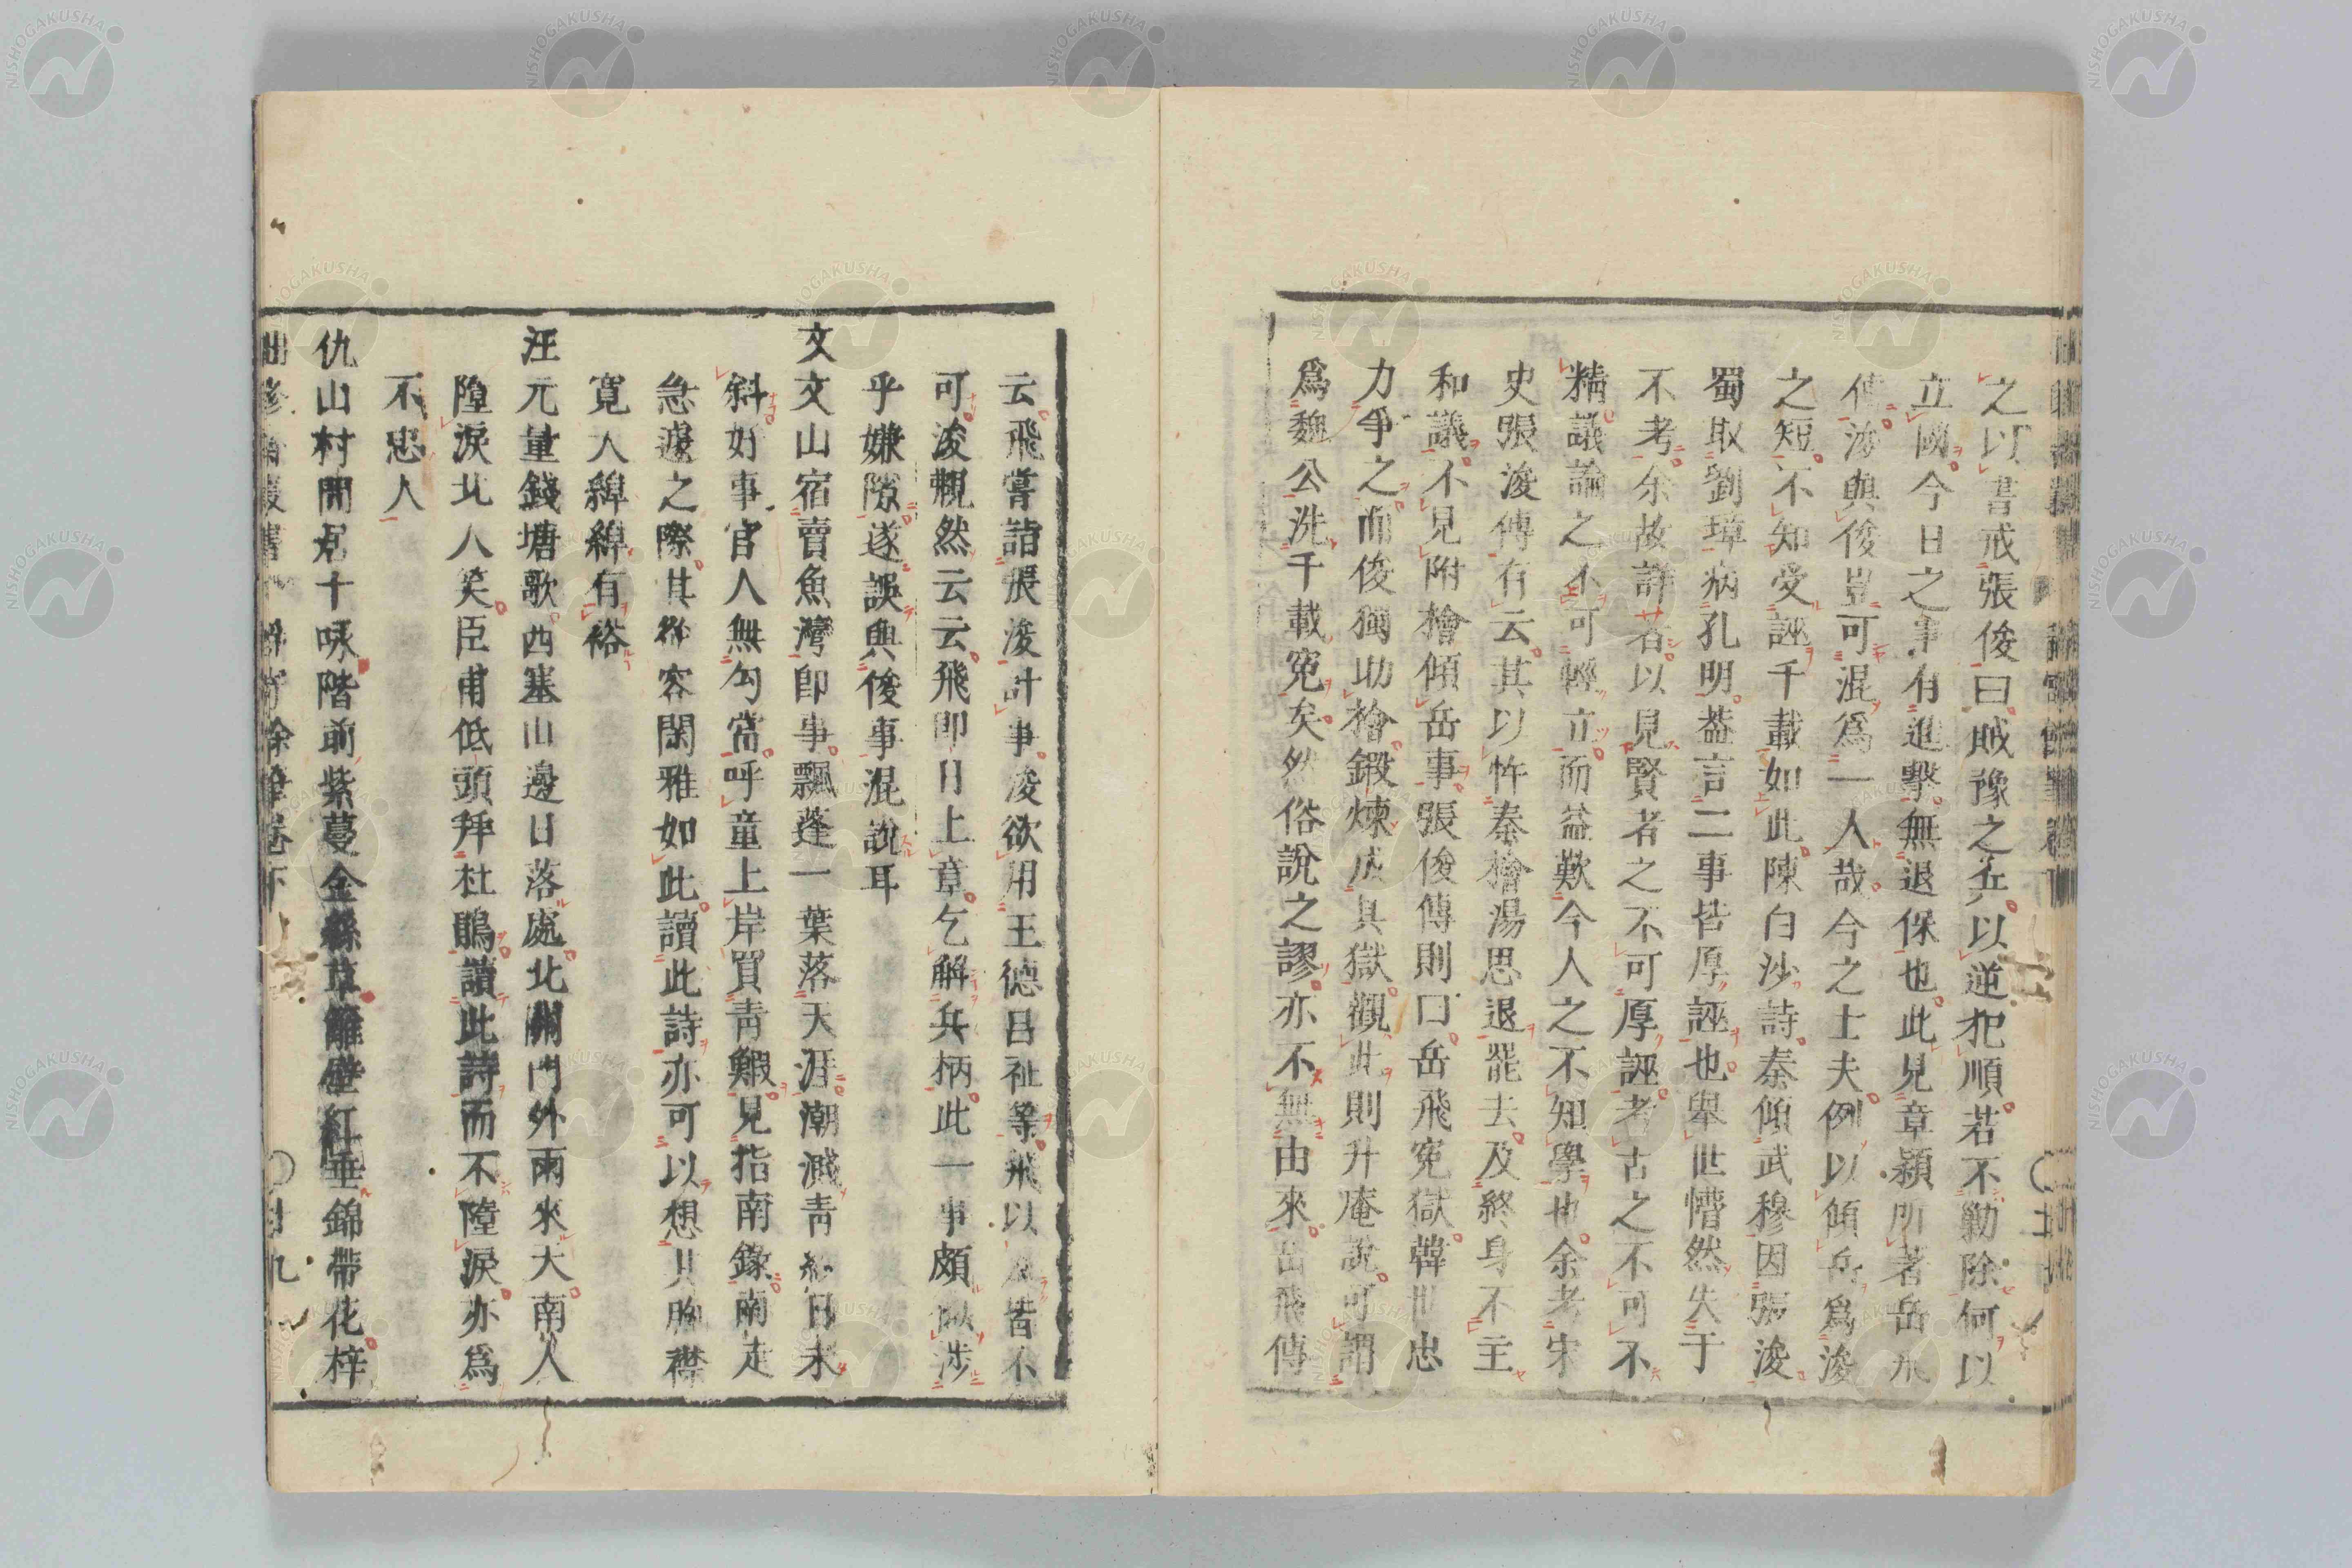 之以書戒張俊曰賊豫之兵以逆犯順若不勦除何以
立國今日之事有進擊無退保也此見章穎所著岳飛
傳浚與俊豈可混爲一人哉今之士夫例以傾岳爲浚
之短不知受誣千載如此陳白沙詩秦傾武穆因張浚
蜀取劉璋病孔明葢言二事皆厚誣也舉世懵然失于
不考余故詳著以見賢者之不可厚誣考古之不可不
精議論之不可輕立而益歎今人之不知學也余考宋
史張浚傳有云其以忤秦檜湯思退罷去及終身不主
和議不見附檜傾岳事張俊傳則曰岳飛寃獄韓世忠
力爭之而俊獨助檜鍛煉成其獄觀此則升庵說可謂
爲魏公洗千載寃矣然俗說之謬亦不無由來岳飛傳
云飛嘗詣張浚計事浚欲用王德呂祉等飛以爲皆不
可浚艴然云云飛即日上章乞解兵柄此一事頗似涉
乎嫌隙遂誤與俊事混說耳
文文山宿賣魚灣即事飄蓬一葉落天涯潮濺青紗日未
斜好事官人無勾當呼童上岸買青鰕見指南錄南走
急遽之際其從容閑雅如此讀此詩亦可以想其胸襟
寛大綽綽有裕
汪元量錢塘歌西塞山邊日落處北關門外雨來天南人
墮淚北人笑臣甫低頭拜杜鵑讀此詩而不墮淚亦爲
不忠人
仇山村閒居十咏階前紫蔓金絲草籬壁紅垂錦帶花梓